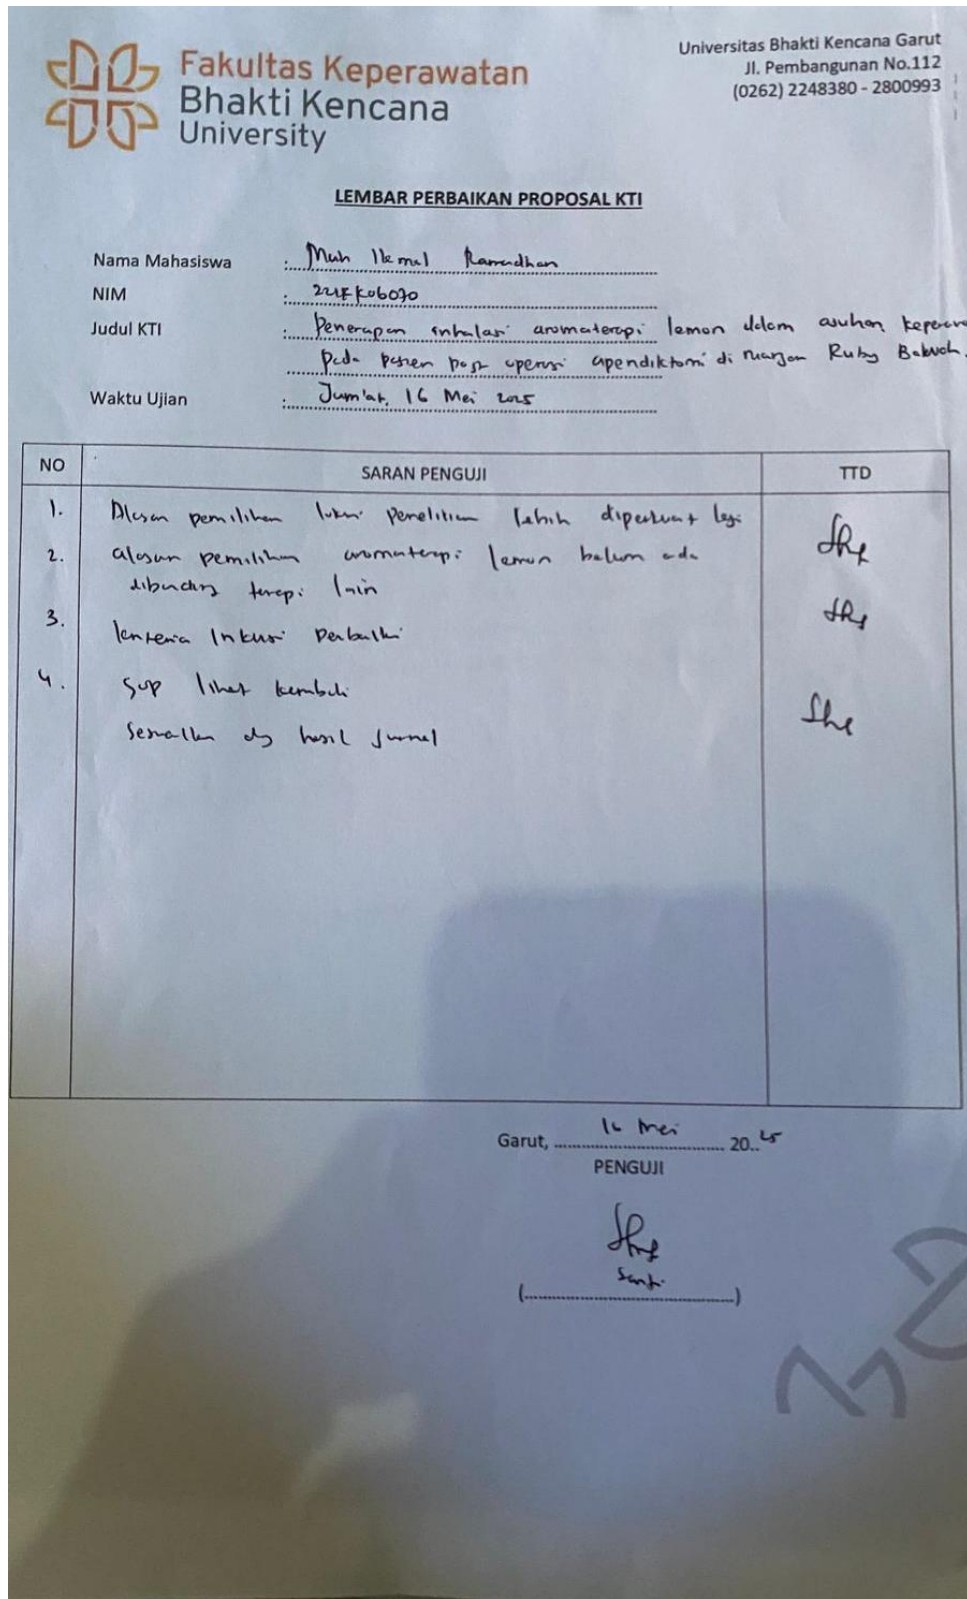 Fakultas Keperawatan
Bhakti Kencana
University
Universitas Bhakti Kencana Garut
Jl. Pembangunan No.112
(0262) 2248380 - 2800993
LEMBAR PERBAIKAN PROPOSAL KTI
Nama Mahasiswa : Muh Ikmal Ramadhan
NIM : 221FK06070
Judul KTI : Penerapan inhalasi aromaterapi lemon dalam asuhan kepera
pada pasien post operasi apendiktomi di ruangan Ruby Bawah.
Waktu Ujian : Jum'at, 16 Mei 2025
NO SARAN PENGUJI TTD
1. Alasan pemilihan lokasi penelitian lebih diperkuat lagi
2. alasan pemilihan aromaterapi lemon belum ada
dibanding terapi lain
3. kriteria Inkusi Perbaiki
4. SOP lihat kembali
Sesuaikan dg hasil Jurnal
Garut, 16 Mei 2025
PENGUJI
Santi